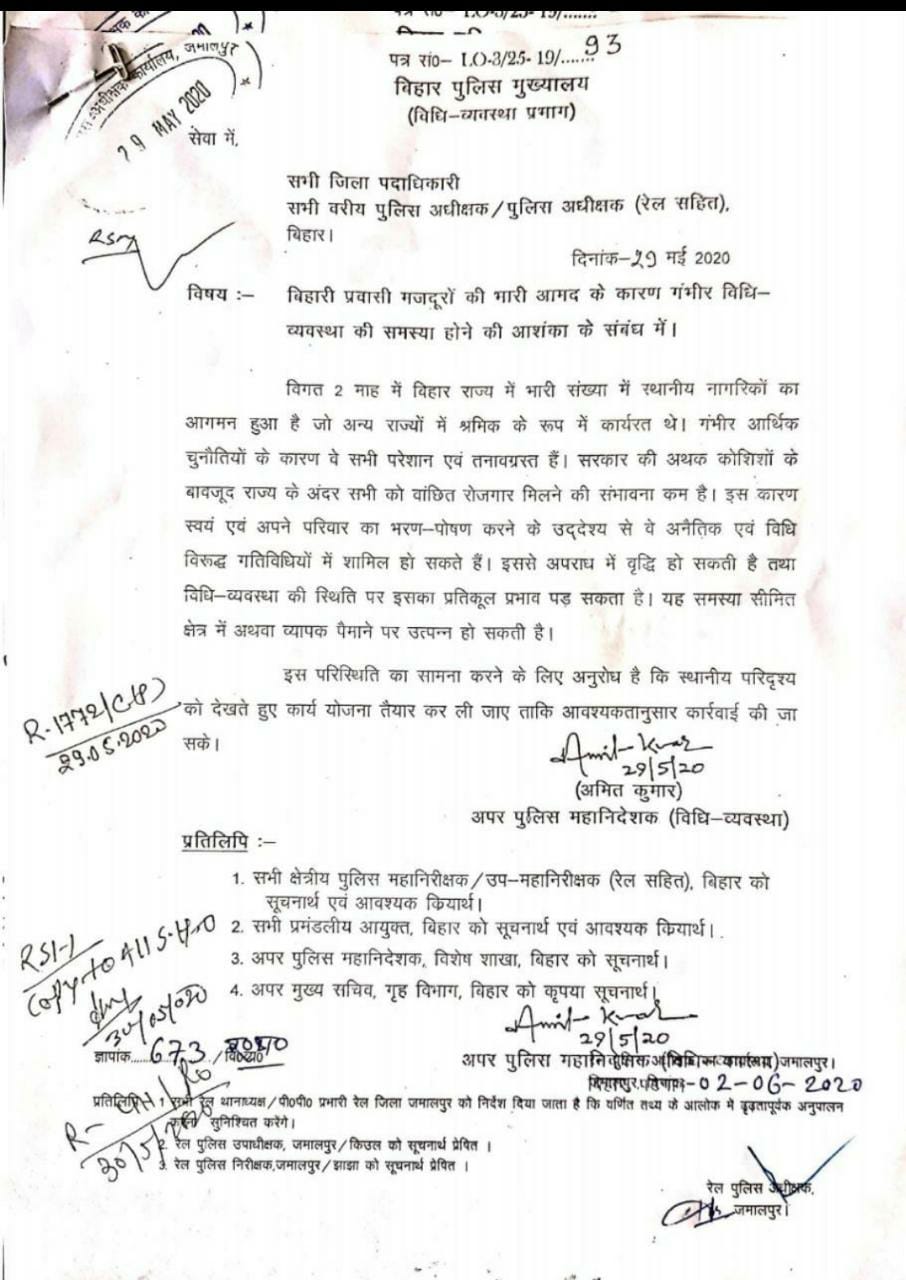 पत्र सं०– I.O-3/25-19/.......93
बिहार पुलिस मुख्यालय
(विधि–व्यवस्था प्रभाग)
कार्यालय, जमालपुर
29 MAY 2020
सेवा में,
सभी जिला पदाधिकारी
सभी वरीय पुलिस अधीक्षक/पुलिस अधीक्षक (रेल सहित),
बिहार।
दिनांक–29 मई 2020
विषय :– बिहारी प्रवासी मजदूरों की भारी आमद के कारण गंभीर विधि–
व्यवस्था की समस्या होने की आशंका के संबंध में।
विगत 2 माह में बिहार राज्य में भारी संख्या में स्थानीय नागरिकों का
आगमन हुआ है जो अन्य राज्यों में श्रमिक के रूप में कार्यरत थे। गंभीर आर्थिक
चुनौतियों के कारण वे सभी परेशान एवं तनावग्रस्त हैं। सरकार की अथक कोशिशों के
बावजूद राज्य के अंदर सभी को वांछित रोजगार मिलने की संभावना कम है। इस कारण
स्वयं एवं अपने परिवार का भरण–पोषण करने के उद्देश्य से वे अनैतिक एवं विधि
विरूद्ध गतिविधियों में शामिल हो सकते हैं। इससे अपराध में वृद्धि हो सकती है तथा
विधि–व्यवस्था की स्थिति पर इसका प्रतिकूल प्रभाव पड़ सकता है। यह समस्या सीमित
क्षेत्र में अथवा व्यापक पैमाने पर उत्पन्न हो सकती है।
इस परिस्थिति का सामना करने के लिए अनुरोध है कि स्थानीय परिदृश्य
को देखते हुए कार्य योजना तैयार कर ली जाए ताकि आवश्यकतानुसार कार्रवाई की जा
सके।
R-1772/C(P)
29.05.2020
Amit Kumar
29/5/20
(अमित कुमार)
अपर पुलिस महानिदेशक (विधि–व्यवस्था)
प्रतिलिपि :–
1. सभी क्षेत्रीय पुलिस महानिरीक्षक/उप–महानिरीक्षक (रेल सहित), बिहार को
सूचनार्थ एवं आवश्यक कियार्थ।
2. सभी प्रमंडलीय आयुक्त, बिहार को सूचनार्थ एवं आवश्यक कियार्थ।
3. अपर पुलिस महानिदेशक, विशेष शाखा, बिहार को सूचनार्थ।
4. अपर मुख्य सचिव, गृह विभाग, बिहार को कृपया सूचनार्थ।
RSI-1
Copy to All S.H.O
30/05/020
Amit Kumar
29/5/20
ज्ञापांक.....673
अपर पुलिस जमालपुर।
02-06-2020
प्रतिलिपि 1 सभी रेल थानाध्यक्ष/पी०पी० प्रभारी रेल जिला जमालपुर को निर्देश दिया जाता है कि वर्णित तथ्य के आलोक में दृढ़तापूर्वक अनुपालन
सुनिश्चित करेंगे।
2. रेल पुलिस उपाधीक्षक, जमालपुर/किउल को सूचनार्थ प्रेषित ।
3. रेल पुलिस निरीक्षक,जमालपुर/झाझा को सूचनार्थ प्रेषित ।
30/5/2020
रेल पुलिस अधीक्षक,
जमालपुर।